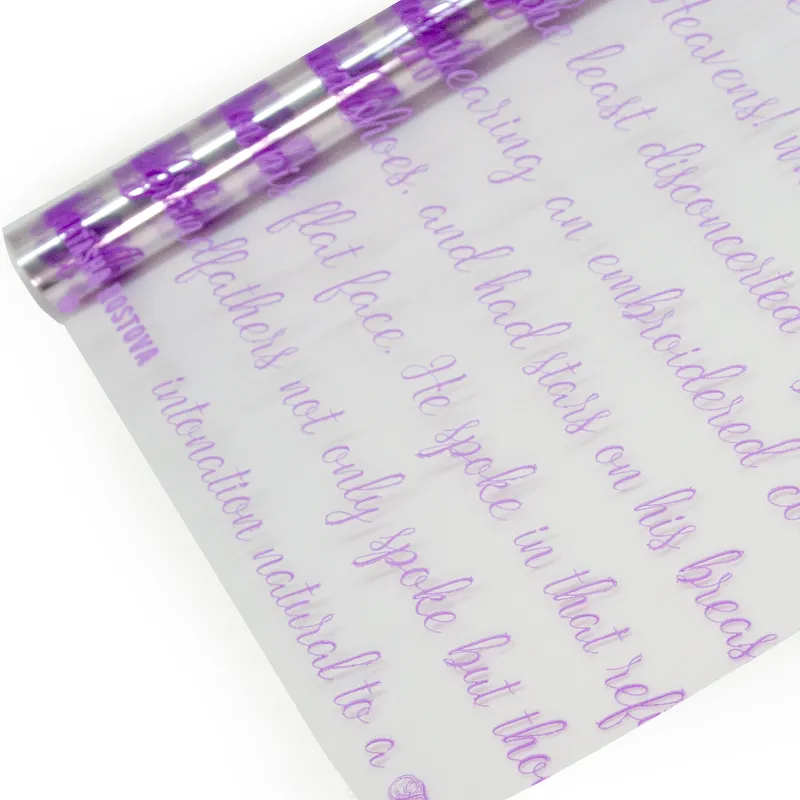 Heavens! w
the least disconcerted
hearing an embroidered co
shoes, and had stars on his breas
flat face. He spoke in that refi
dfathers not only spoke but tho
ROSTOVA intonation natural to a